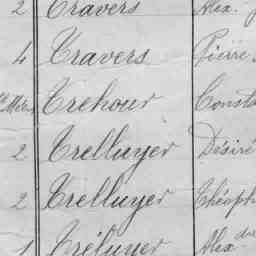 2 Travers Alex.
4 Travers Pierre
Trehour Consta
2 Trelluyer Désiré
2 Trelluyer Théoph
1 Tréluyer Alexdre